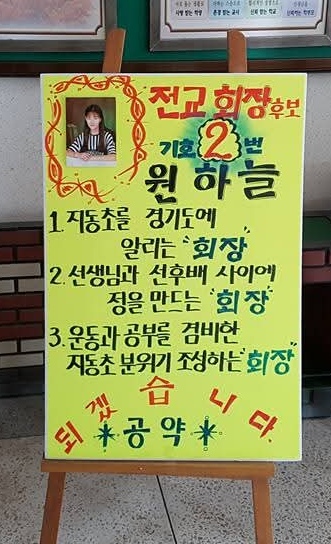 사랑 받는 학생
존경 받는 교사
신뢰 받는 학교
전교 회장후보
기호 2 번
원하늘
1. 지동초를 경기도에
알리는 "회장"
2. 선생님과 선후배 사이에
정을 만드는 "회장"
3. 운동과 공부를 겸비한
지동초 분위기 조성하는 "회장"
되겠습니다.
*공약*